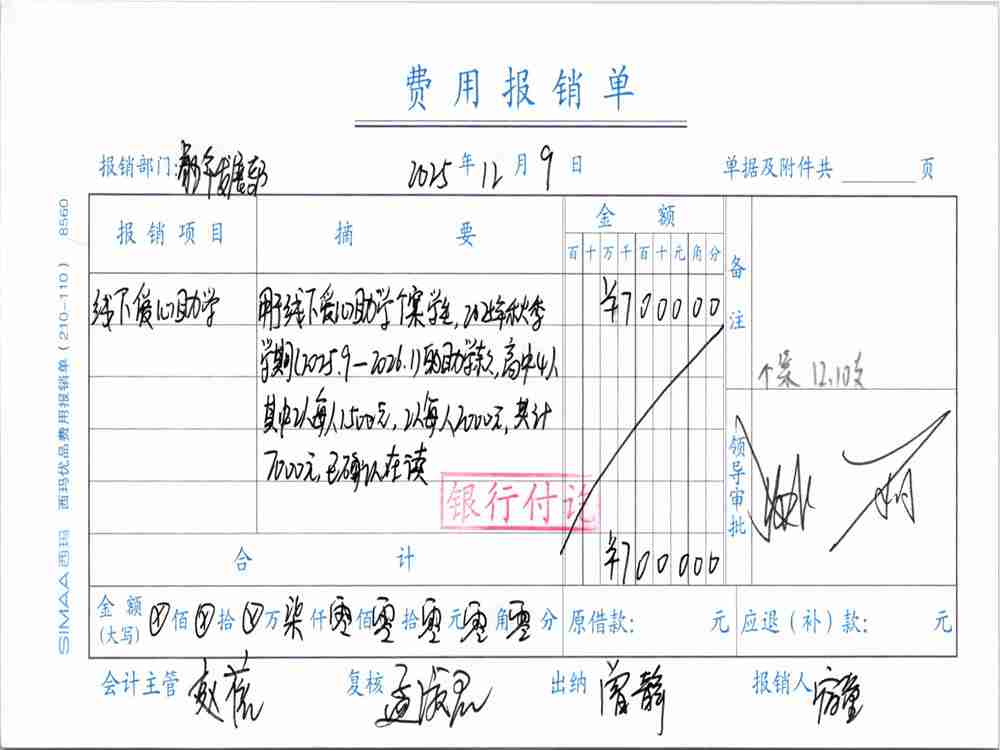 费用报销单
报销部门: 2025年12月9日 单据及附件共 页
报销项目 摘要 金额 备注
百十万千百十元角分
线下爱心助学 用于线下爱心助学个案学生,2025年秋季 ¥700000
学期(2025.9—2026.1)的助学款,高中4人
其中2人每人1500元,2人每人2000元,共计
7000元,已确认在读
个案 12.10支
银行付讫
领导审批
合计 ¥700000
金额(大写) ⊗佰⊗拾⊗万柒仟零佰零拾零元零角零分 原借款: 元 应退(补)款: 元
会计主管 复核 出纳 曾静 报销人
SIMAA西玛 西玛优品费用报销单(210-110) 8560